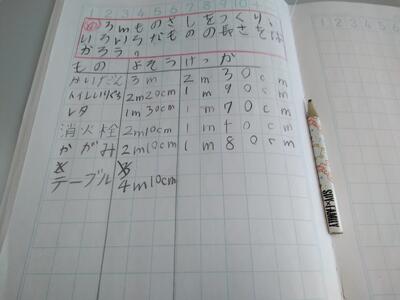 1 2 3 4 5 6 7 8 9 10
め 3mものさしをつくり、
いろいろなものの長さをは
かろう。
もの よそう けっか
かいだん 3m 2m30cm
トイレいりぐち 2m20cm 1m90cm
1m30cm 1m70cm
消火栓 2m10cm 1m40cm
かがみ 2m10cm 1m80cm
テーブル 4m10cm
SPY×FAMILY